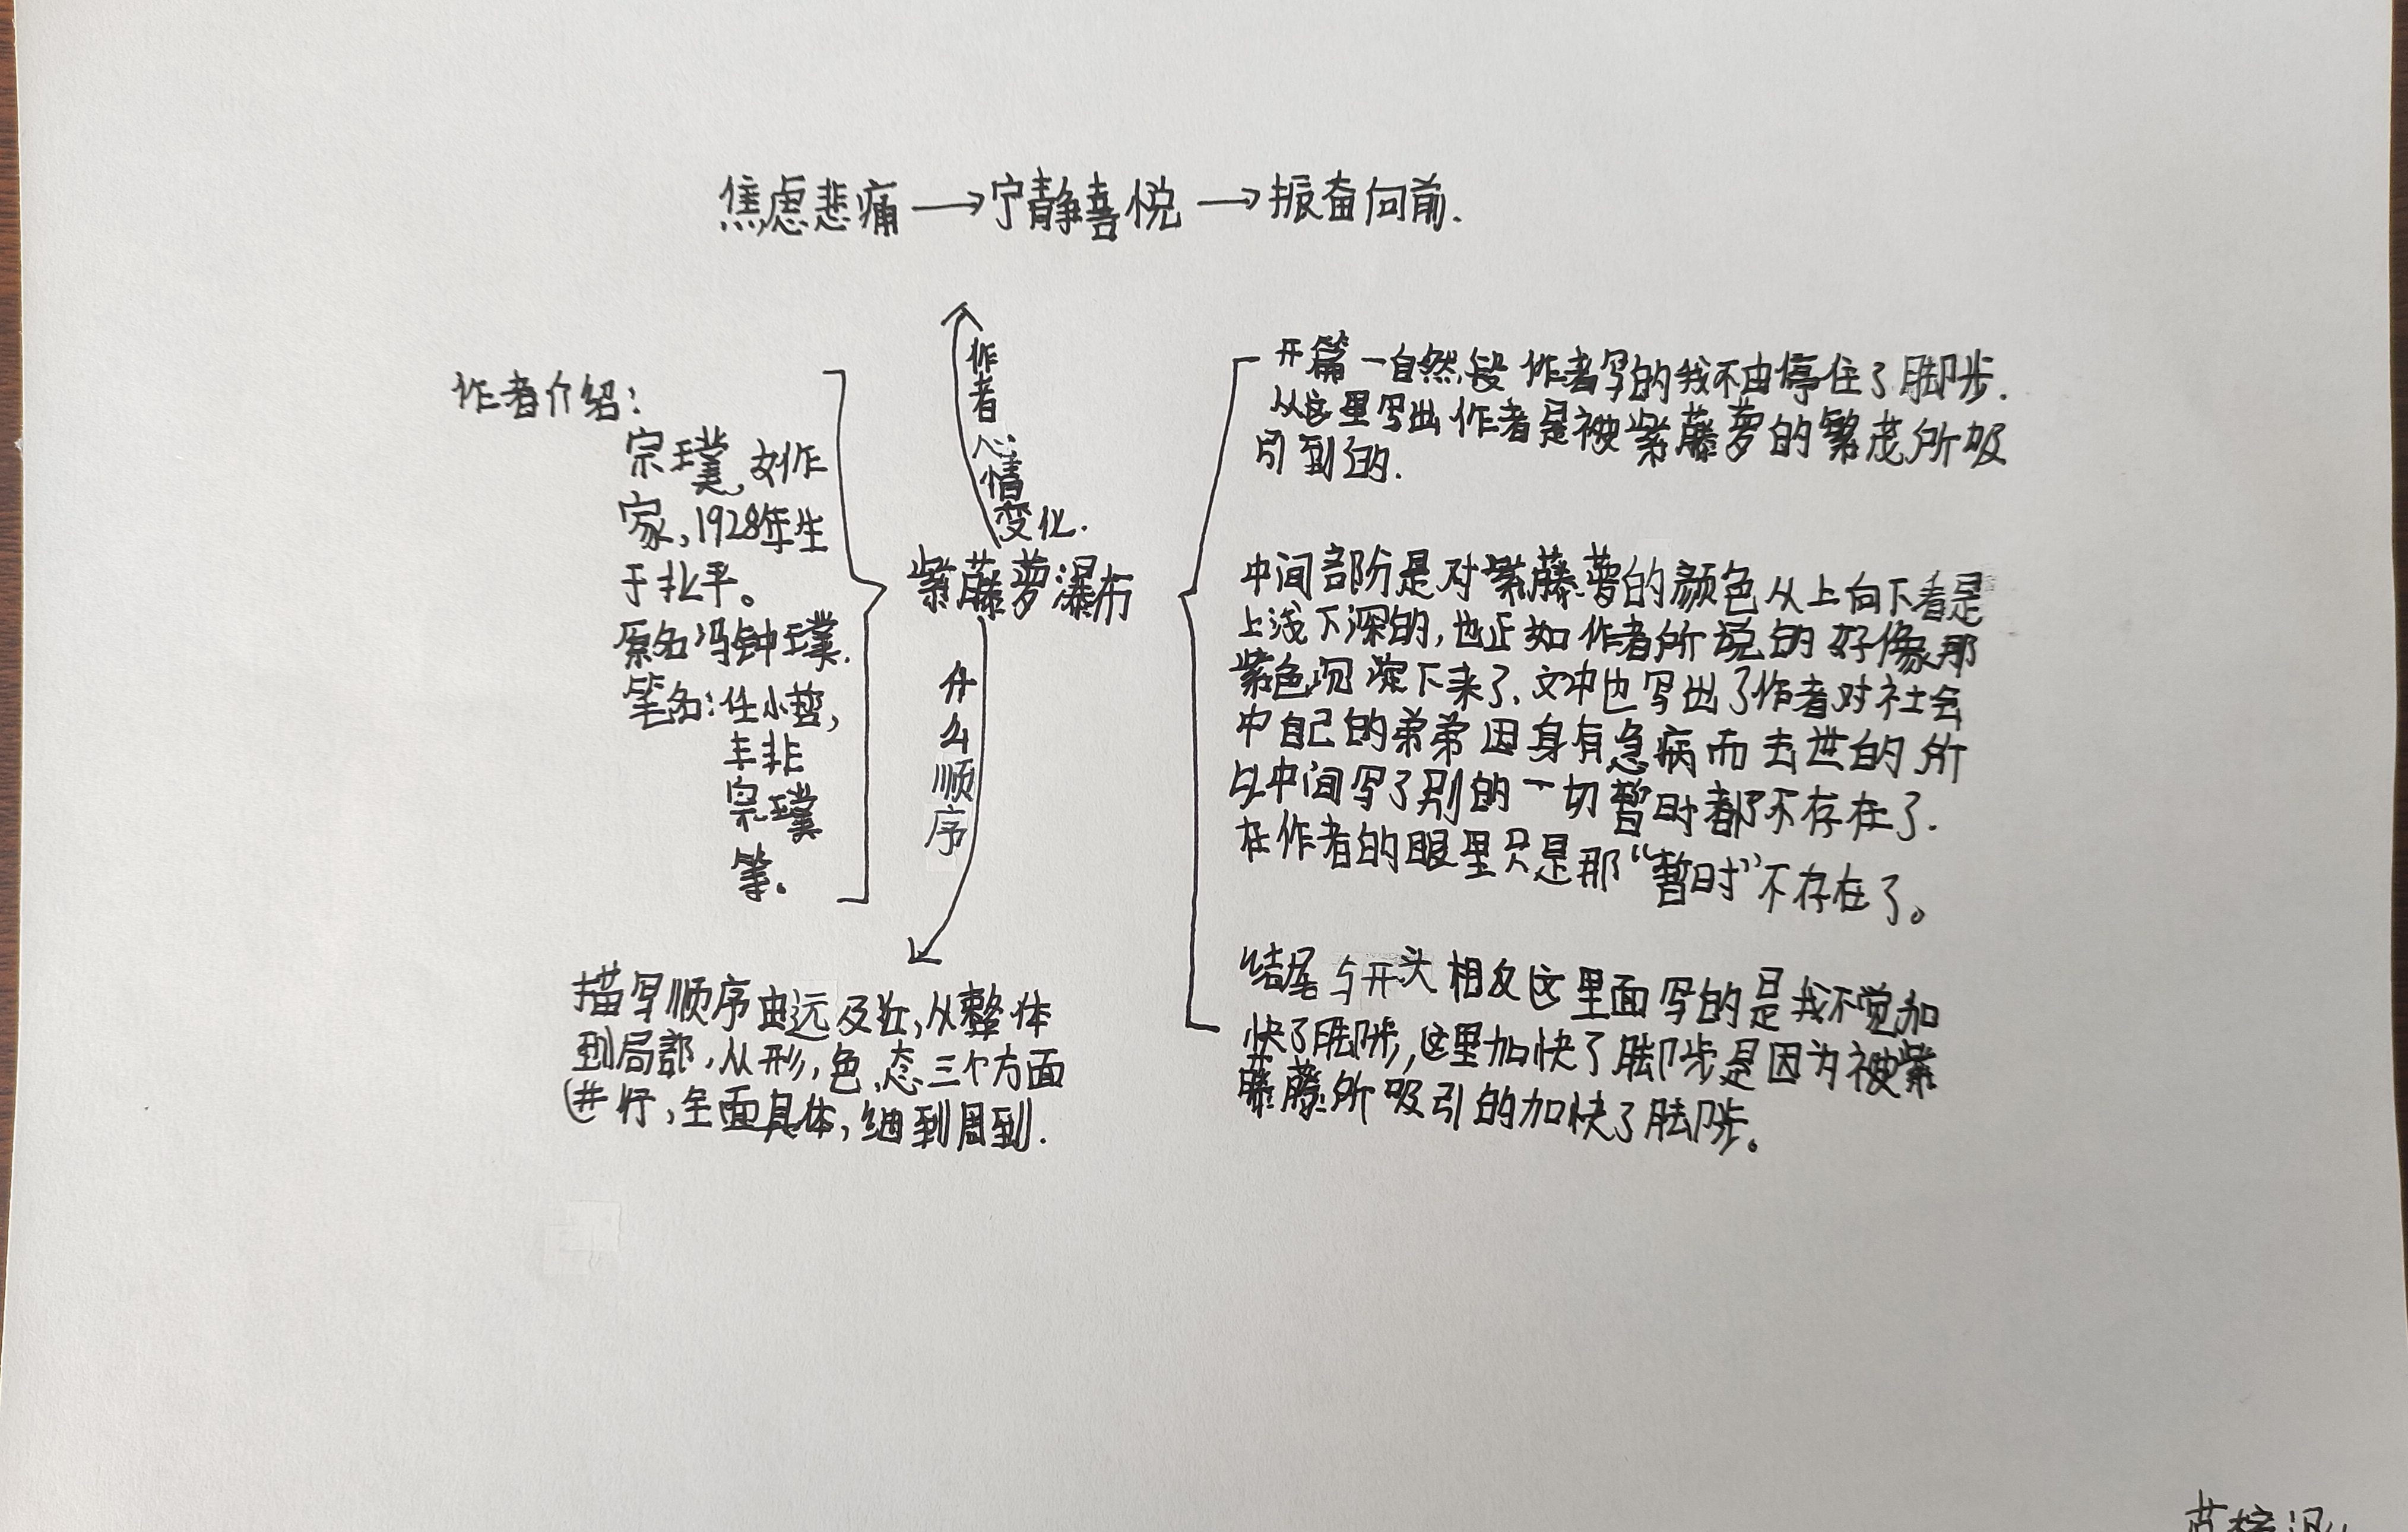 焦虑悲痛→宁静喜悦→振奋向前.
作者心情变化.
作者介绍:
宗璞,女作
家,1928年生
于北平。
原名冯钟璞.
笔名:任小哲,
丰非
宗璞
等。
紫藤萝瀑布
什么顺序
描写顺序由远及近,从整体
到局部,从形,色,态三个方面
进行,全面具体,细到周到.
开篇一自然段作者写的我不由停住了脚步.
从这里写出作者是被紫藤萝的繁茂所吸
引到的.
中间部分是对紫藤萝的颜色从上向下看是
上浅下深的,也正如作者所说的好像那
紫色沉淀下来了,文中也写出了作者对社会
中自己的弟弟因身有急病而去世的所
以中间写了别的一切暂时都不存在了.
在作者的眼里只是那“暂时”不存在了。
结尾与开头相反这里面写的是我不觉加
快了脚步,这里加快了脚步是因为被紫
藤藤所吸引的加快了脚步。